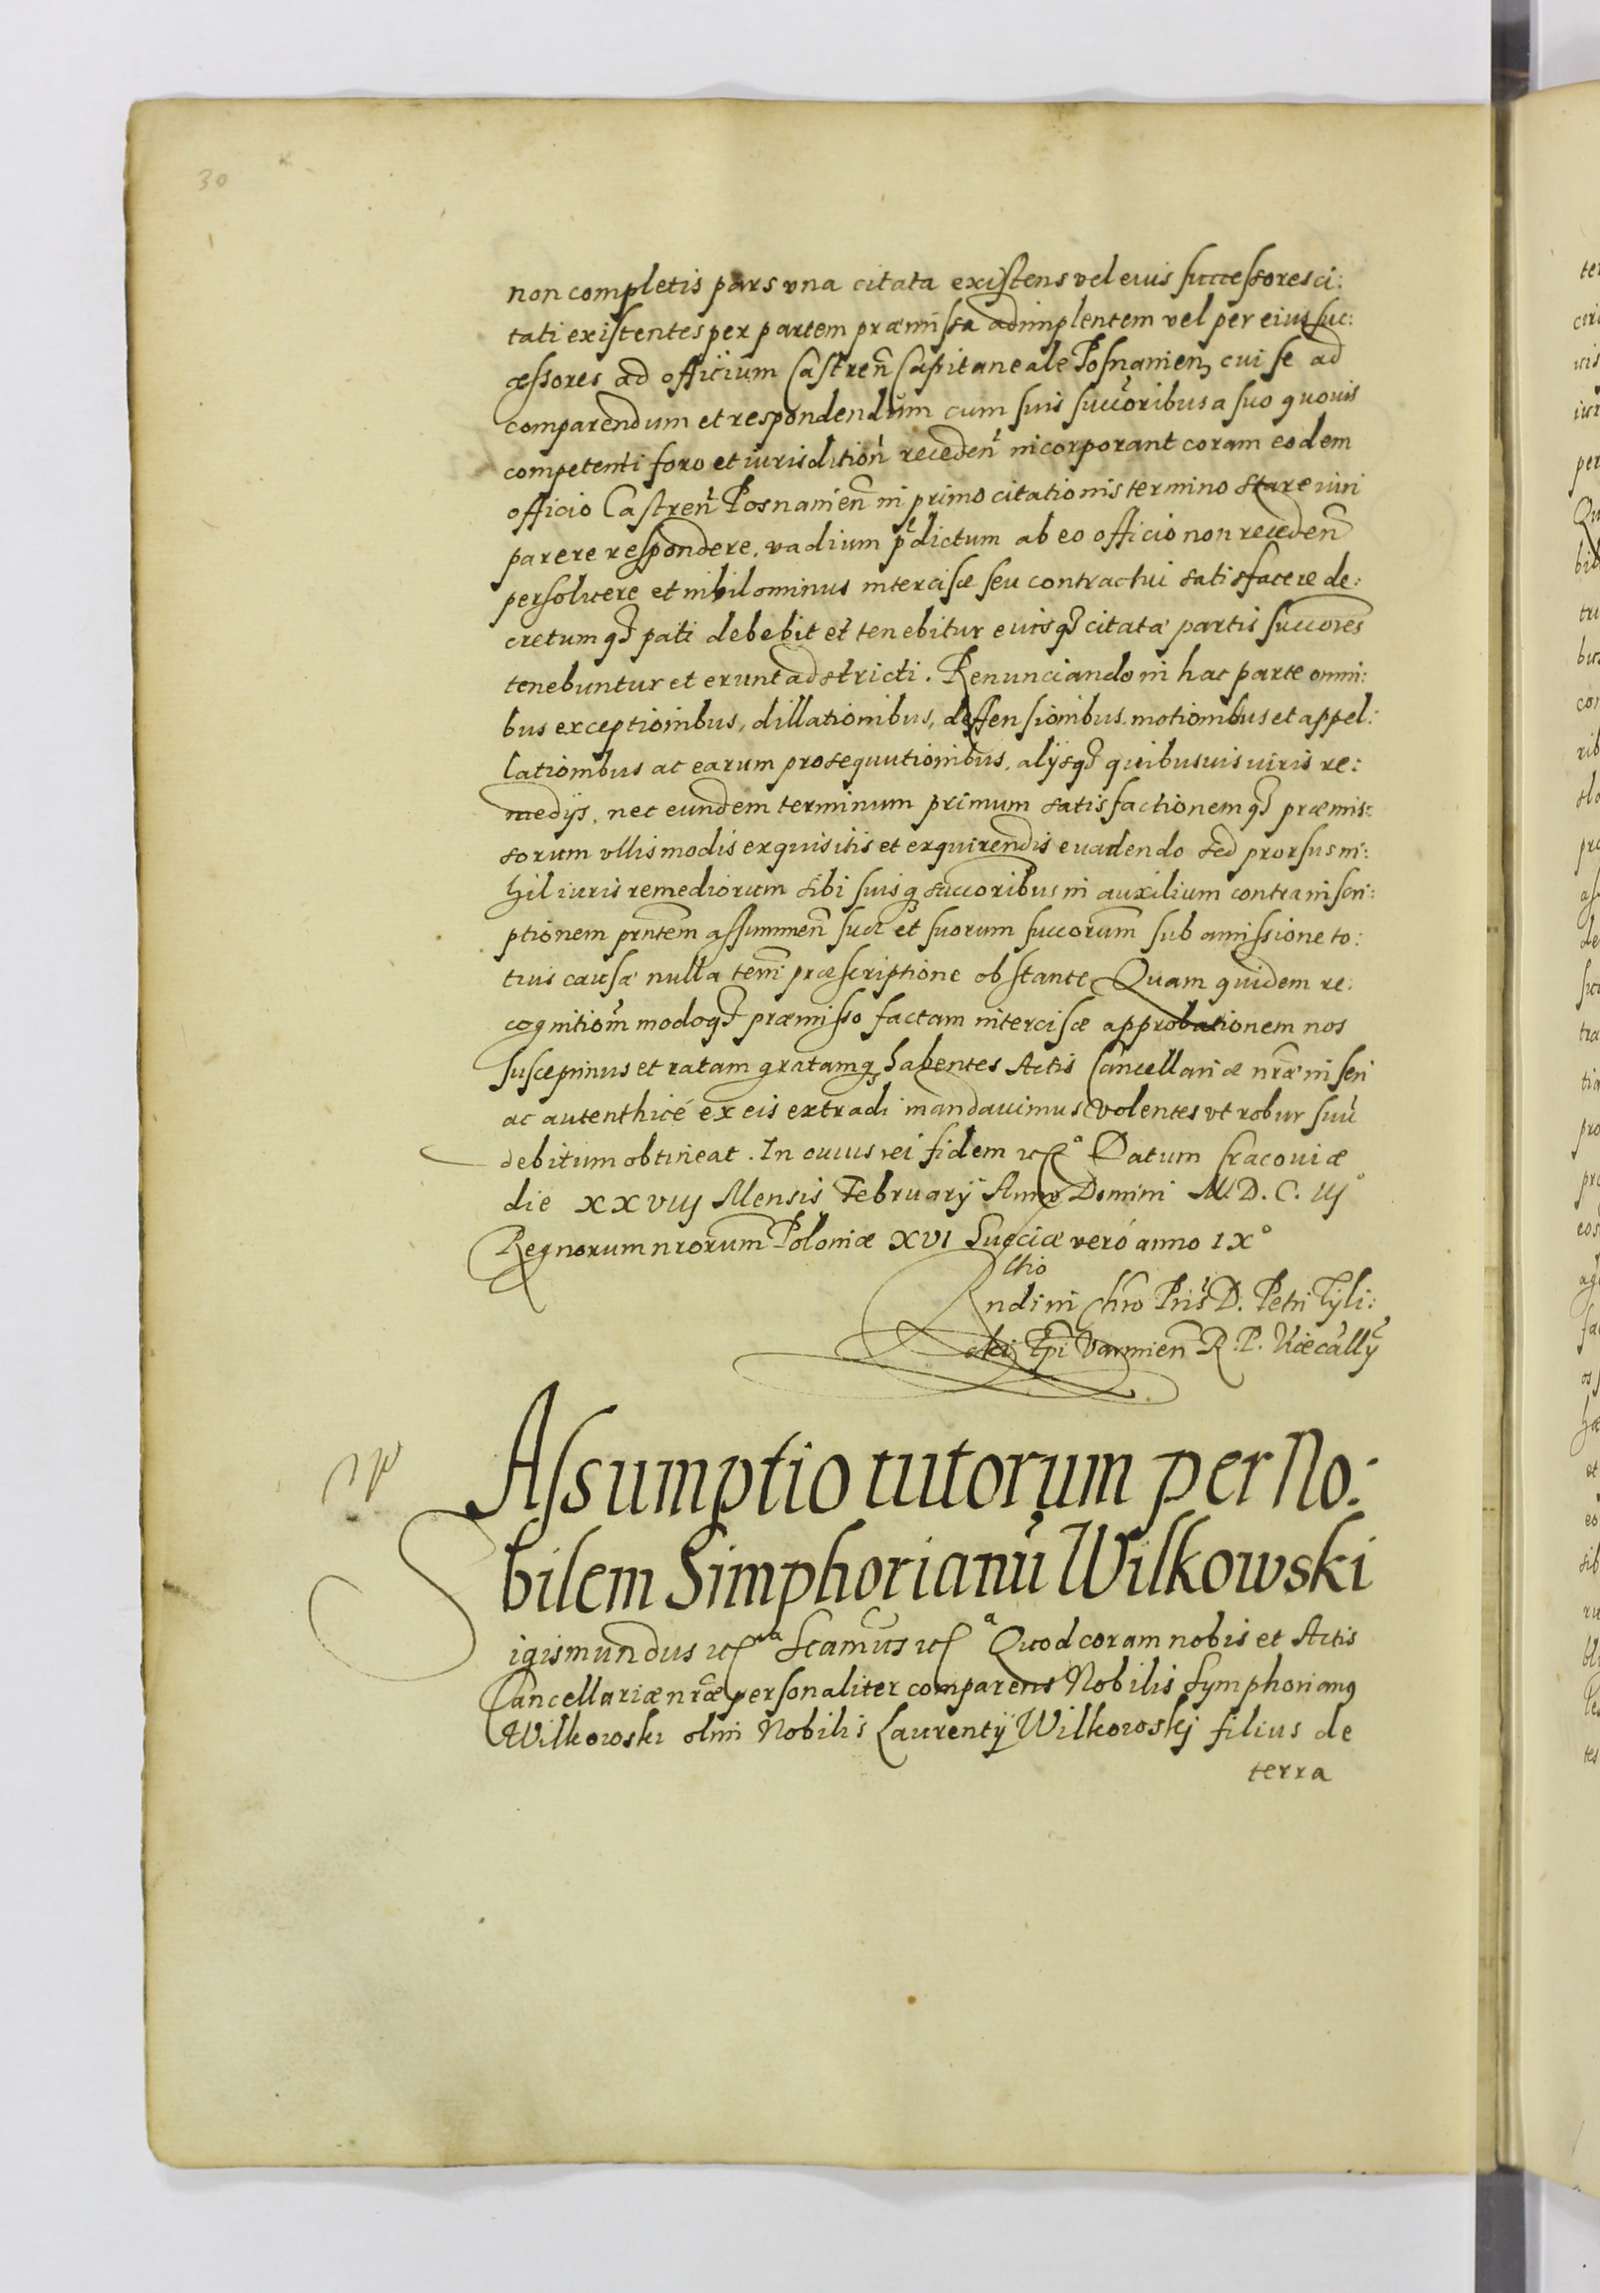 30
non completis pars vna citata existens vel euis successores ci:
tati existentes per partem præmissa adimplentem vel per eius suc:
cessores ad officium Castren̄ Capitaneale Posnanien, cui se ad
comparendum et respondendum cum suis succoribus a suo quouis
competenti foro et iurisdition̄ receden̄ incorporant coram eodem
officio Castren̄ Posnanien̄ in primo citationis termino stare iuri
parere respondere, vadium p̄dictum ab eo officio non receden̄
persoluere et nihilominus intercisæ seu contractui satisfacere de:
cretumq₃ pati debebit et tenebitur euisq₃ citatæ partis succores
tenebuntur et erunt adstricti. Renunciando in hac parte omni:
bus exceptionibus, dillationibus, deffensionibus, motionibus et appel:
lationibus ac earum prosequutionibus, alijsq₃ quibusuis iuris re:
medijs, nec eundem terminum primum satisfactionemq₃ præmis:
sorum vllis modis exquisitis et exquirendis euadendo sed prorsus ni:
hil iuris remediorum sibi suisq₃ succoribus in auxilium contra inscri:
ptionem prntem assummen̄ suā et suorum succorum sub amissione to:
tius causæ nulla tem̄ præscriptione obstante Quam quidem re:
cognitiom̄ modoq₃ præmisso factam intercisæ approbationem nos
suscepimus et ratam gratamq₃ habentes Actis Cancellariæ nr̄æ inseri
ac autenthicé ex eis extradi mandauimus volentes vt robur suū
debitum obtineat. In cuius rei fidem Datum Cracouiæ
die XXVIIJ Mensis Februarij Anno Domini M.D.C.IIJ°
Regnorum nrorum Poloniæ XVI Sueciæ veró anno IX°
Rltio
ndi in Chro Pris D. Petri Tyli:
cki Ep̄i Varmien̄ R. P. Vicecāllrij
Assumptio tutorum per No:
bilem Simphorianū Wilkowski
Sigismundus Scamus Quod coram nobis et Actis
Cancellariæ nr̄æ personaliter comparens Nobilis Symphorianq
Wilkowski olim Nobilis Laurentij Wilkowskj filius de
terra